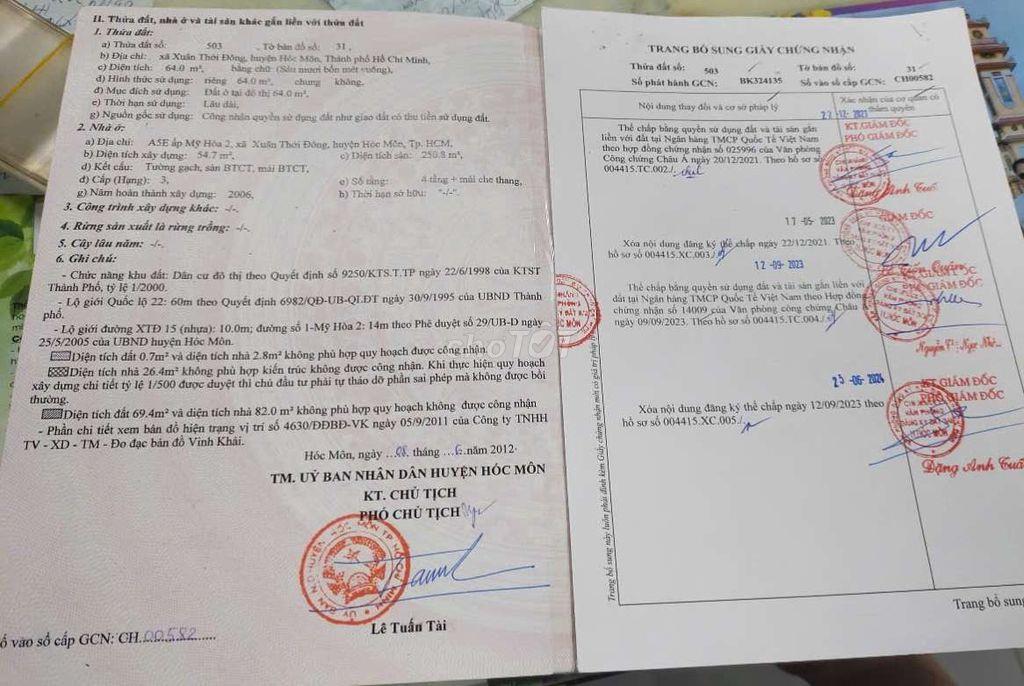 II. Thửa đất, nhà ở và tài sản khác gắn liền với thửa đất
1. Thửa đất:
a) Thửa đất số: 503 , Tờ bản đồ số: 31 ,
b) Địa chỉ: xã Xuân Thới Đông, huyện Hóc Môn, Thành phố Hồ Chí Minh,
c) Diện tích: 64.0 m², bằng chữ: (Sáu mươi bốn mét vuông),
d) Hình thức sử dụng: riêng 64.0 m², chung không,
đ) Mục đích sử dụng: Đất ở tại đô thị 64.0 m²,
e) Thời hạn sử dụng: Lâu dài,
g) Nguồn gốc sử dụng: Công nhận quyền sử dụng đất như giao đất có thu tiền sử dụng đất.
2. Nhà ở:
a) Địa chỉ: A5E ấp Mỹ Hòa 2, xã Xuân Thới Đông, huyện Hóc Môn, Tp. HCM,
b) Diện tích xây dựng: 54.7 m², c) Diện tích sàn: 250.8 m²,
d) Kết cấu: Tường gạch, sàn BTCT, mái BTCT,
đ) Cấp (Hạng): 3, e) Số tầng: 4 tầng + mái che thang,
g) Năm hoàn thành xây dựng: 2006, h) Thời hạn sở hữu: "-/-".
3. Công trình xây dựng khác: -/-.
4. Rừng sản xuất là rừng trồng: -/-.
5. Cây lâu năm: -/-.
6. Ghi chú:
- Chức năng khu đất: Dân cư đô thị theo Quyết định số 9250/KTS.T.TP ngày 22/6/1998 của KTST
Thành Phố, tỷ lệ 1/2000.
- Lộ giới Quốc lộ 22: 60m theo Quyết định 6982/QĐ-UB-QLĐT ngày 30/9/1995 của UBND Thành
phố.
- Lộ giới đường XTĐ 15 (nhựa): 10.0m; đường số 1-Mỹ Hòa 2: 14m theo Phê duyệt số 29/UB-D ngày
25/5/2005 của UBND huyện Hóc Môn.
Diện tích đất 0.7m² và diện tích nhà 2.8m² không phù hợp quy hoạch được công nhận.
Diện tích 26.4m² không phù hợp kiến trúc không được công nhận. Khi thực hiện quy hoạch
xây dựng chi tiết tỷ lệ 1/500 được duyệt thì chủ đầu tư phải tự tháo dỡ phần sai phép mà không được bồi
thường.
Diện tích đất 69.4m² và diện tích nhà 82.0 m² không phù hợp quy hoạch không được công nhận
- Phần chi tiết xem bản đồ hiện trạng vị trí số 4630/ĐĐBĐ-VK ngày 05/9/2011 của Công ty TNHH
TV - XD - TM - Đo đạc bản đồ Vinh Khải.
Hóc Môn, ngày ...08. tháng ...6. năm 2012
TM. UỶ BAN NHÂN DÂN HUYỆN HÓC MÔN
KT. CHỦ TỊCH
PHÓ CHỦ TỊCH
Lê Tuấn Tài
ố vào sổ cấp GCN: CH.00582
TRANG BỔ SUNG GIẤY CHỨNG NHẬN
Thửa đất số: 503 Tờ bản đồ số: 31
Số phát hành GCN: BK324135 Số vào sổ cấp GCN: CH00582
Nội dung thay đổi và cơ sở pháp lý
Xác nhận của cơ quan có
thẩm quyền
22-12-2021
KT.GIÁM ĐỐC
PHÓ GIÁM ĐỐC
Thế chấp bằng quyền sử dụng đất và tài sản gắn
liền với đất tại Ngân hàng TMCP Quốc Tế Việt Nam
theo hợp đồng chứng nhận số 025996 của Văn phòng
Công chứng Châu Á ngày 20/12/2021. Theo hồ sơ số
004415.TC.002./
Đặng Anh Tuấ
17-05-2023
GIÁM ĐỐC
Xóa nội dung đăng ký thế chấp ngày 22/12/2021. Theo
hồ sơ số 004415.XC.003./
12-09-2023
Thế chấp bằng quyền sử dụng đất và tài sản gắn liền với
đất tại Ngân hàng TMCP Quốc Tế Việt Nam theo Hợp đồng
chứng nhận số 14009 của Văn phòng công chứng Châu Á
ngày 09/09/2023. Theo hồ sơ số 004415.TC.004./
GIÁM ĐỐC
25-06-2024
KT.GIÁM ĐỐC
PHÓ GIÁM ĐỐC
Xóa nội dung đăng ký thế chấp ngày 12/09/2023 theo
hồ sơ số 004415.XC.005./
Đặng Anh Tuấ
Trang bổ sung
chợTỐT